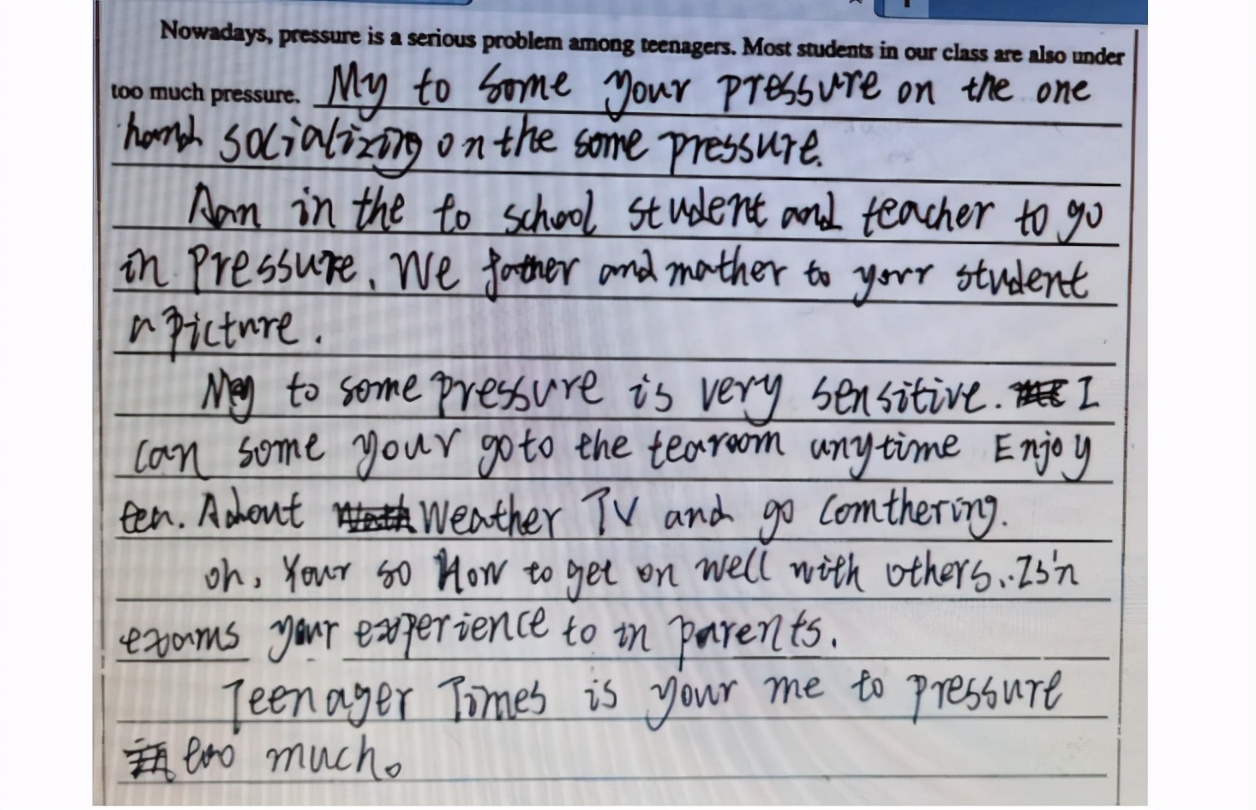 Nowadays, pressure is a serious problem among teenagers. Most students in our class are also under
too much pressure. My to some your pressure on the one
hand socializing on the some pressure.
Aam in the to school student and teacher to go
in pressure. We father and mather to your student
a picture.
My to some pressure is very sensitive. I
can some your go to the tearoom anytime Enjoy
tea. Adout Weather TV and go Comthering.
oh, Your so How to get on well with others. Is'n
exams your experience to in parents.
Teenager Times is your me to pressure
too much。